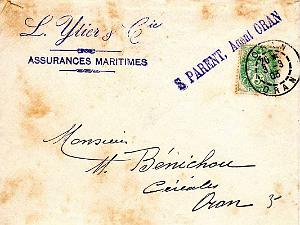 L. Ytier & Cie
ASSURANCES MARITIMES
S. PARENT, Agent ORAN
ORAN
Monsieur
M. Bénichou
Céréales
Oran